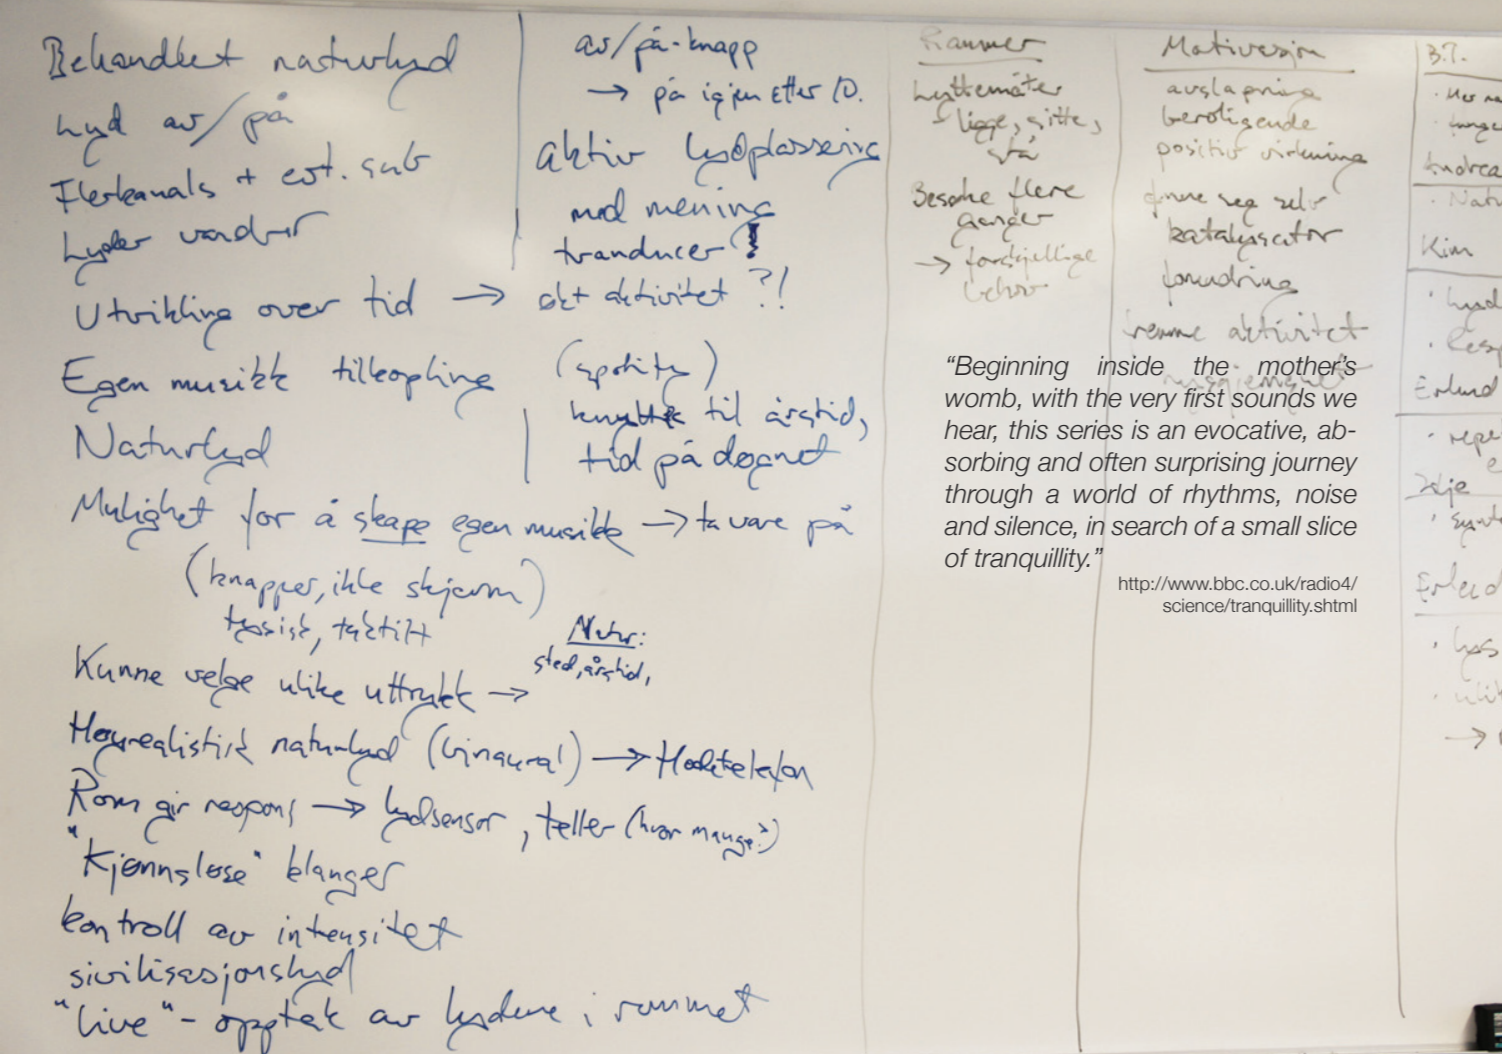 Behandlet naturlyd
Lyd av/på
Flerkanals + evt. sub
Lyder
Utvikling over tid → økt aktivitet ?!
Egen musikk tilkopling (spotify)
Naturlyd
Mulighet for å skape egen musikk → ta vare på
(knapper, ikke skjerm)
fysisk, taktilt
Kunne velge ulike uttrykk →
Natur:
sted, årstid,
Høyrealistisk naturlyd (binaural) → Hodetelefon
Rom gir respons → lydsensor, teller (hvor mange?)
"Kjønnsløse" klanger
kontroll av intensitet
sivilisasjonslyd
"live" - opptak av lydene i rommet
av/på-knapp
→ på igjen etter 10.
aktiv lydplassering
med mening
tranducer
knyttet til årstid,
tid på døgnet
Rammer
Lyttemåter
- ligge, sitte,
stå
Besøke flere
ganger
→ forskjellige
behov
Motivasjon
avslapning
beroligende
positiv virkning
finne seg selv
katalysator
forundring
fremme aktivitet
nysgjerrighet
"Beginning inside the mother's
womb, with the very first sounds we
hear, this series is an evocative, ab-
sorbing and often surprising journey
through a world of rhythms, noise
and silence, in search of a small slice
of tranquillity."
http://www.bbc.co.uk/radio4/
science/tranquillity.shtml
Kim